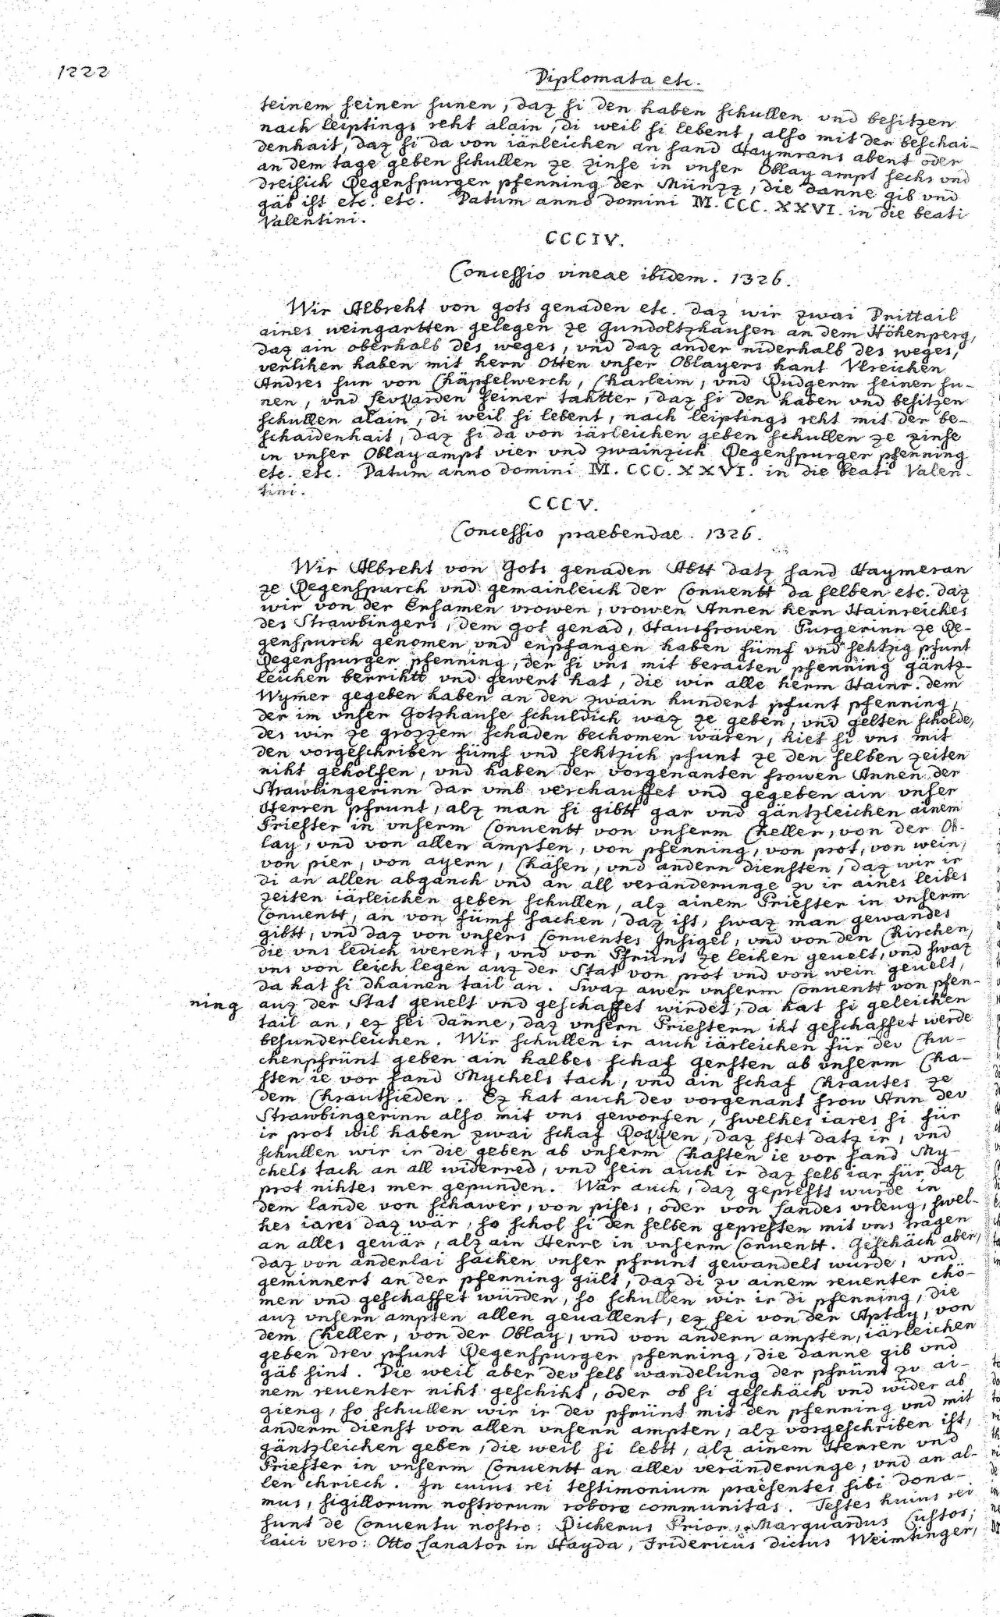 1222
Diplomata etc.
seinem seinen sunen, daz si den haben schullen vnd besitzen
nach leiptings reht alain, di weil si lebent, also mit der beschai-
denhait, daz si da von iärleichen an sand Haymrans abent oder
an dem tage geben schullen ze zinse in vnser Oblay ampt sechs vnd
dreisich Regenspurger pfenning der Münzz, die danne gib vnd
gäb ist etc. etc. Datum anno domini M. CCC. XXVI. in die beati
Valentini.
CCCIV.
Concessio vineae ibidem. 1326.
Wir Albreht von gots genaden etc. daz wir zwai Drittail
aines weingartten gelegen ze Gundoltzhausen an dem Höhenperg,
daz ain oberhalb des weges, vnd daz ander niderhalb des weges,
verlihen haben mit hern Otten vnser Oblayers hant Vlreichen
Andres sun von Chäpfelwerch, Charleim, vnd Rudgerm seinen su-
nen, vnd seiner tahtter, daz si den haben vnd besitzen
schullen alain, di weil si lebent, nach leiptings reht mit der be-
schaidenhait, daz si da von iärleichen geben schullen ze zinse
in vnser Oblay ampt vier vnd zwainzich Regenspurger pfenning
etc. etc. Datum anno domini M. CCC. XXVI. in die beati Valen-
tini.
CCCV.
Concessio praebendae. 1326.
Wir Albreht von Gots genaden Abtt datz sand Haymeran
ze Regenspurch vnd gemainleich der Conuentt da selben etc. daz
wir von der Ersamen vrowen, vrowen Annen hern Hainreiches
des Strawbingers, dem got genad, Hausfrowen Purgerinn ze Re-
genspurch genomen vnd enpfangen haben fümf vnd sehtzig pfunt
Regenspurger pfenning, der si vns mit beraiten pfenning gäntz-
leichen berrihtt vnd gewert hat, die wir alle herm Hainr. dem
Wymer gegeben haben an den zwain hundert pfunt pfenning,
der im vnser Gotzhause schuldich waz ze geben, vnd gelten scholde,
des wir ze grozzem schaden bechomen wären, hiet si vns mit
den vorgeschriben fümf vnd sehtzich pfunt ze den selben zeiten
niht geholfen, vnd haben der vorgenanten frowen Annen der
Strawbingerinn dar vmb verchauffet vnd gegeben ain vnser
Herren pfrunt, alz man si gibtt gar vnd gäntzleichen ainem
Priester in vnserm Conuentt von vnserm Cheller, von der Ob-
lay, vnd von allen ampten, von pfenning, von prot, von wein,
von pier, von ayern, Chäsen, vnd andern diensten, daz wir ir
di an allen abganch vnd an all veränderunge zu ir aines leibes
zeiten iarleichen geben schullen, alz ainem Priester in vnserm
Conuentt, an von fümf sachen, daz ist, swaz man gewandes
gibtt, vnd daz von vnsers Conuentes Insigel, vnd von den Chirchen,
die vns ledich werent, vnd von Pfrünt ze leihen geuelt, vnd swaz
vns von leich legen auz der Stat von prot vnd von wein geuelt,
da hat si dhainen tail an. Swaz awer vnserm Conuentt von pfen-
ning auz der Stat geuelt vnd geschaffet wirdet, da hat si geleichen
tail an, ez sei danne, daz vnsern Priestern iht geschaffet werde
besunderleichen. Wir schullen ir auch iärleichen für dev Chu-
chenpfrünt geben ain halbes schaf Gersten ab vnserm Cha-
sten ie vor sand Mychels tach, vnd ain schaf Chrautes ze
dem Chrautsieden. Ez hat auch dev vorgenant frow Ann dev
Strawbingerinn also mit vns geworfen, swelhes iares si für
ir prot wil haben zwai schaf Rokken, daz stet datz ir, vnd
schullen wir ir die geben ab vnserm Chasten ie vor sand My-
chels tach an all widerred, vnd sein auch ir daz selb iar für daz
prot nihtes mer gepunden. Wär auch, daz geprests wurde in
dem lande von schawer, von pises, oder von landes vrleug, swel-
hes iares daz wär, so schol si den selben gepresten mit vns tragen
an alles geuär, alz ain Herre in vnserm Conuentt. Geschäch aber,
daz von anderlai sachen vnser pfrunt gewandelt wurde, vnd
geminnert an der pfenning gült, daz di zu ainem reuenter chö-
men vnd geschaffet würden, so schullen wir ir di pfenning, die
auz vnsern ampten allen geuallent, ez sei von der Aptay, von
dem Cheller, von der Oblay, vnd von andern ampten, iärleichen
geben drev pfunt Regenspurger pfenning, die danne gib vnd
gäb sint. Die weil aber dev selb wandelung der pfrünt zu ai-
nem reuenter niht geschiht, oder ob si geschäch vnd wider ab
gieng, so schullen wir ir dev pfrünt mit den pfenning vnd mit
anderm dienst von allen vnsern ampten, alz vorgeschriben ist,
gäntzleichen geben, die weil si lebtt, alz ainem Herren vnd
Priester in vnserm Conuentt an allev veränderunge, vnd an al-
len chriech. In cuius rei testimonium praesentes sibi dona-
mus, sigillorum nostrorum robore communitas. Testes huius rei
sunt de Conuentu nostro: Dickerus Prior, Marquardus Custos;
laici vero: Otto Zanator in Hayda, Fridericus dictus Weimtinger,